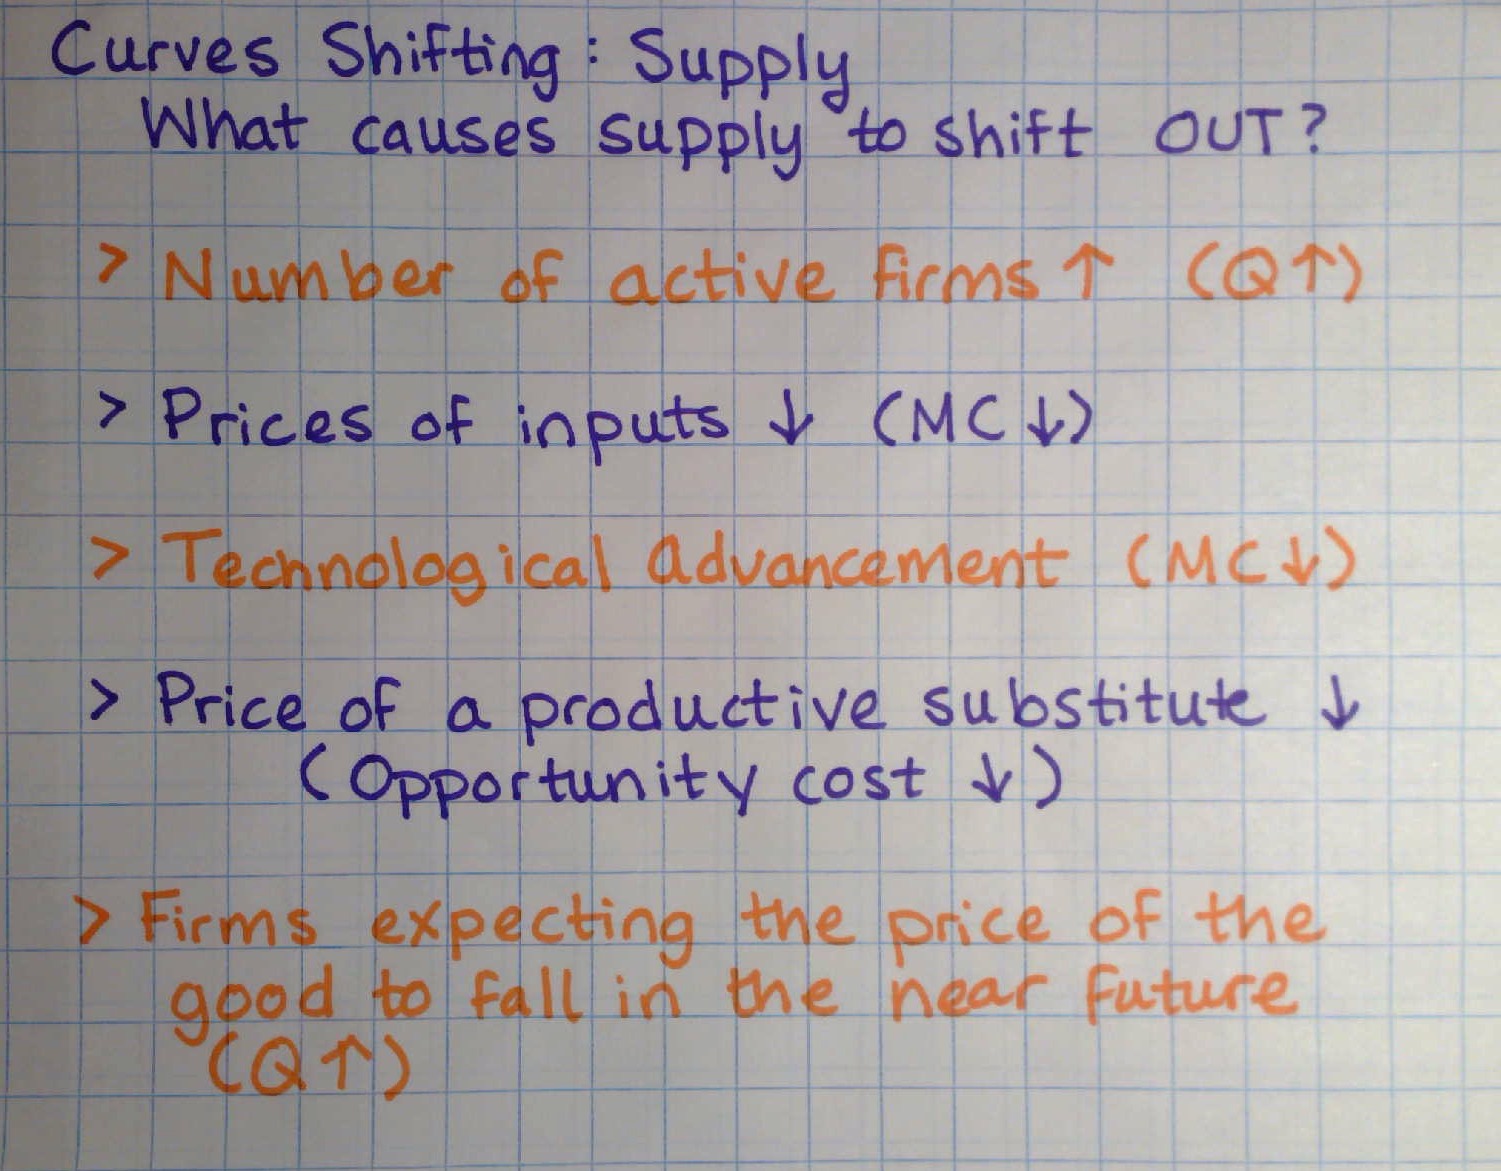 Curves Shifting: Supply
What causes supply to shift OUT?
> Number of active firms ↑ (Q↑)
> Prices of inputs ↓ (MC↓)
> Technological advancement (MC↓)
> Price of a productive substitute ↓
(Opportunity cost ↓)
> Firms expecting the price of the
good to fall in the near future
(Q↑)